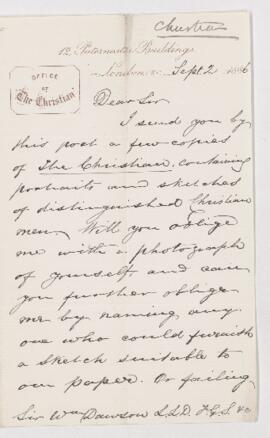 Christian
12, Paternoster Buildings,
London, E.C. Sept 2 1886
OFFICE
OF
"The Christian"
Dear Sir
I send you by
this post a few copies
of The Christian, containing
portraits and sketches
of distinguished Christian
men. Will you oblige
me with a photograph
of yourself, and can
you further oblige
me by naming any
one who could furnish
a sketch suitable to
our paper. Or failing
Sir Wm Dawson L.L.D. F.G.S. &c